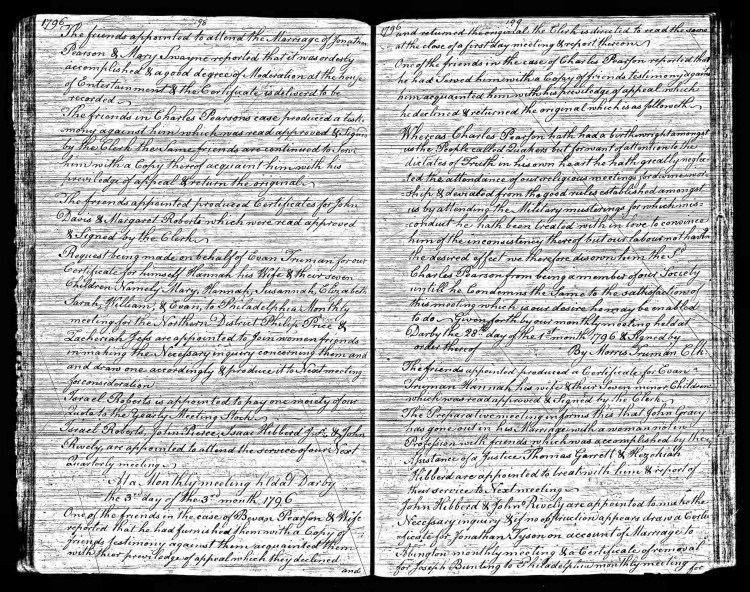 1796
198
The friends appointed to attend the Marriage of Jonathan
Pearson & Mary Swayne reported that it was orderly
accomplished & a good degree of Moderation at the house
of Entertainment & the Certificate is deliverd to be
recorded
The friends in Charles Pearsons case produced a testi-
mony against him which was read approved & Signd
by the Clerk the Same friends are continued to Serve
him with a Copy thereof acquaint him with his
previledge of appeal & return the original
The friends appointed produced Certificates for John
Davis & Margaret Roberts which were read approved
& Signed by the Clerk
Request being made on behalf of Evan Truman for our
Certificate for himself Hannah his Wife & their seven
Children Namely Mary, Hannah, Susannah, Elizabeth
Sarah, William, & Evan, to Philadelphia Monthly
meeting for the Northern District Philip Price &
Zacheriah Jess are appointed to Join women friends
in making the Necessary inquiry concerning them and
and draw one accordingly & produce it to Next meeting
for consideration
Israel Roberts is appointed to pay one moiety of our
quota to the Yearly Meeting Stock
Israel Roberts, John Pierce, Isaac Hibberd Junr. & John
Rively, are appointed to attend the service of our Next
Quarterly meeting
At a Monthly meeting held at Darby
the 3rd day of the 3rd month 1796
One of the friends in the case of Bevan Pearson & Wife
reported that he had furnished them with a Copy of
friends testimony against them acquainted them
with their previledge of appeal which they declined
and
1796
199
and returned the original the Clerk is directed to read the same
at the close of a first day meeting & report thereon
One of the friends in the case of Charles Pearson reported that
he had Served him with a Copy of friends Testimony against
him acquainted him with his previledge of appeal which
he declined & returned the original which is as followeth
Whereas Charles Pearson hath had a birthright amongst
us the People called Quakers but for want of attention to the
dictates of Truth in his own heart he hath greatly neglec-
ted the attendance of our religious meetings for divine wor-
ship & deviated from the good rules established amongst
us by attending the Military musterings for which mis-
conduct he hath been treated with in love to convince
him of the inconsistency thereof but our labour not having
the desired effect we therefore disown him the sd
Charles Pearson from being a member of our Society
untill he Condemns the Same to the satisfaction of
this meeting which is our desire he may be enabled
to do Given forth by our monthly meeting held at
Darby the 28th day of the 1st month 1796 & Signed by
order thereof By Morris Truman Clk
The friends appointed produced a Certificate for Evan
Truman Hannah his wife & their Seven minor Children
which was read approved & Signed by the Clerk
The Preparative meeting informs this that John Gracy
has gone out in his Marriage with a woman not in
Profession with friends which was accomplished by the
Assistance of a Justice Thomas Garrett & Hezekiah
Hibberd are appointed to treat with him & report of
their service to Next meeting
John Hibberd & John Rively are appointed to make the
Necessary inquiry & if no obstruction appears draw a Certi-
ficate for Jonathan Tyson on account of Marriage to
Abington monthly meeting & a Certificate of removal
for Joseph Bunting to Philadelphia monthly meeting for